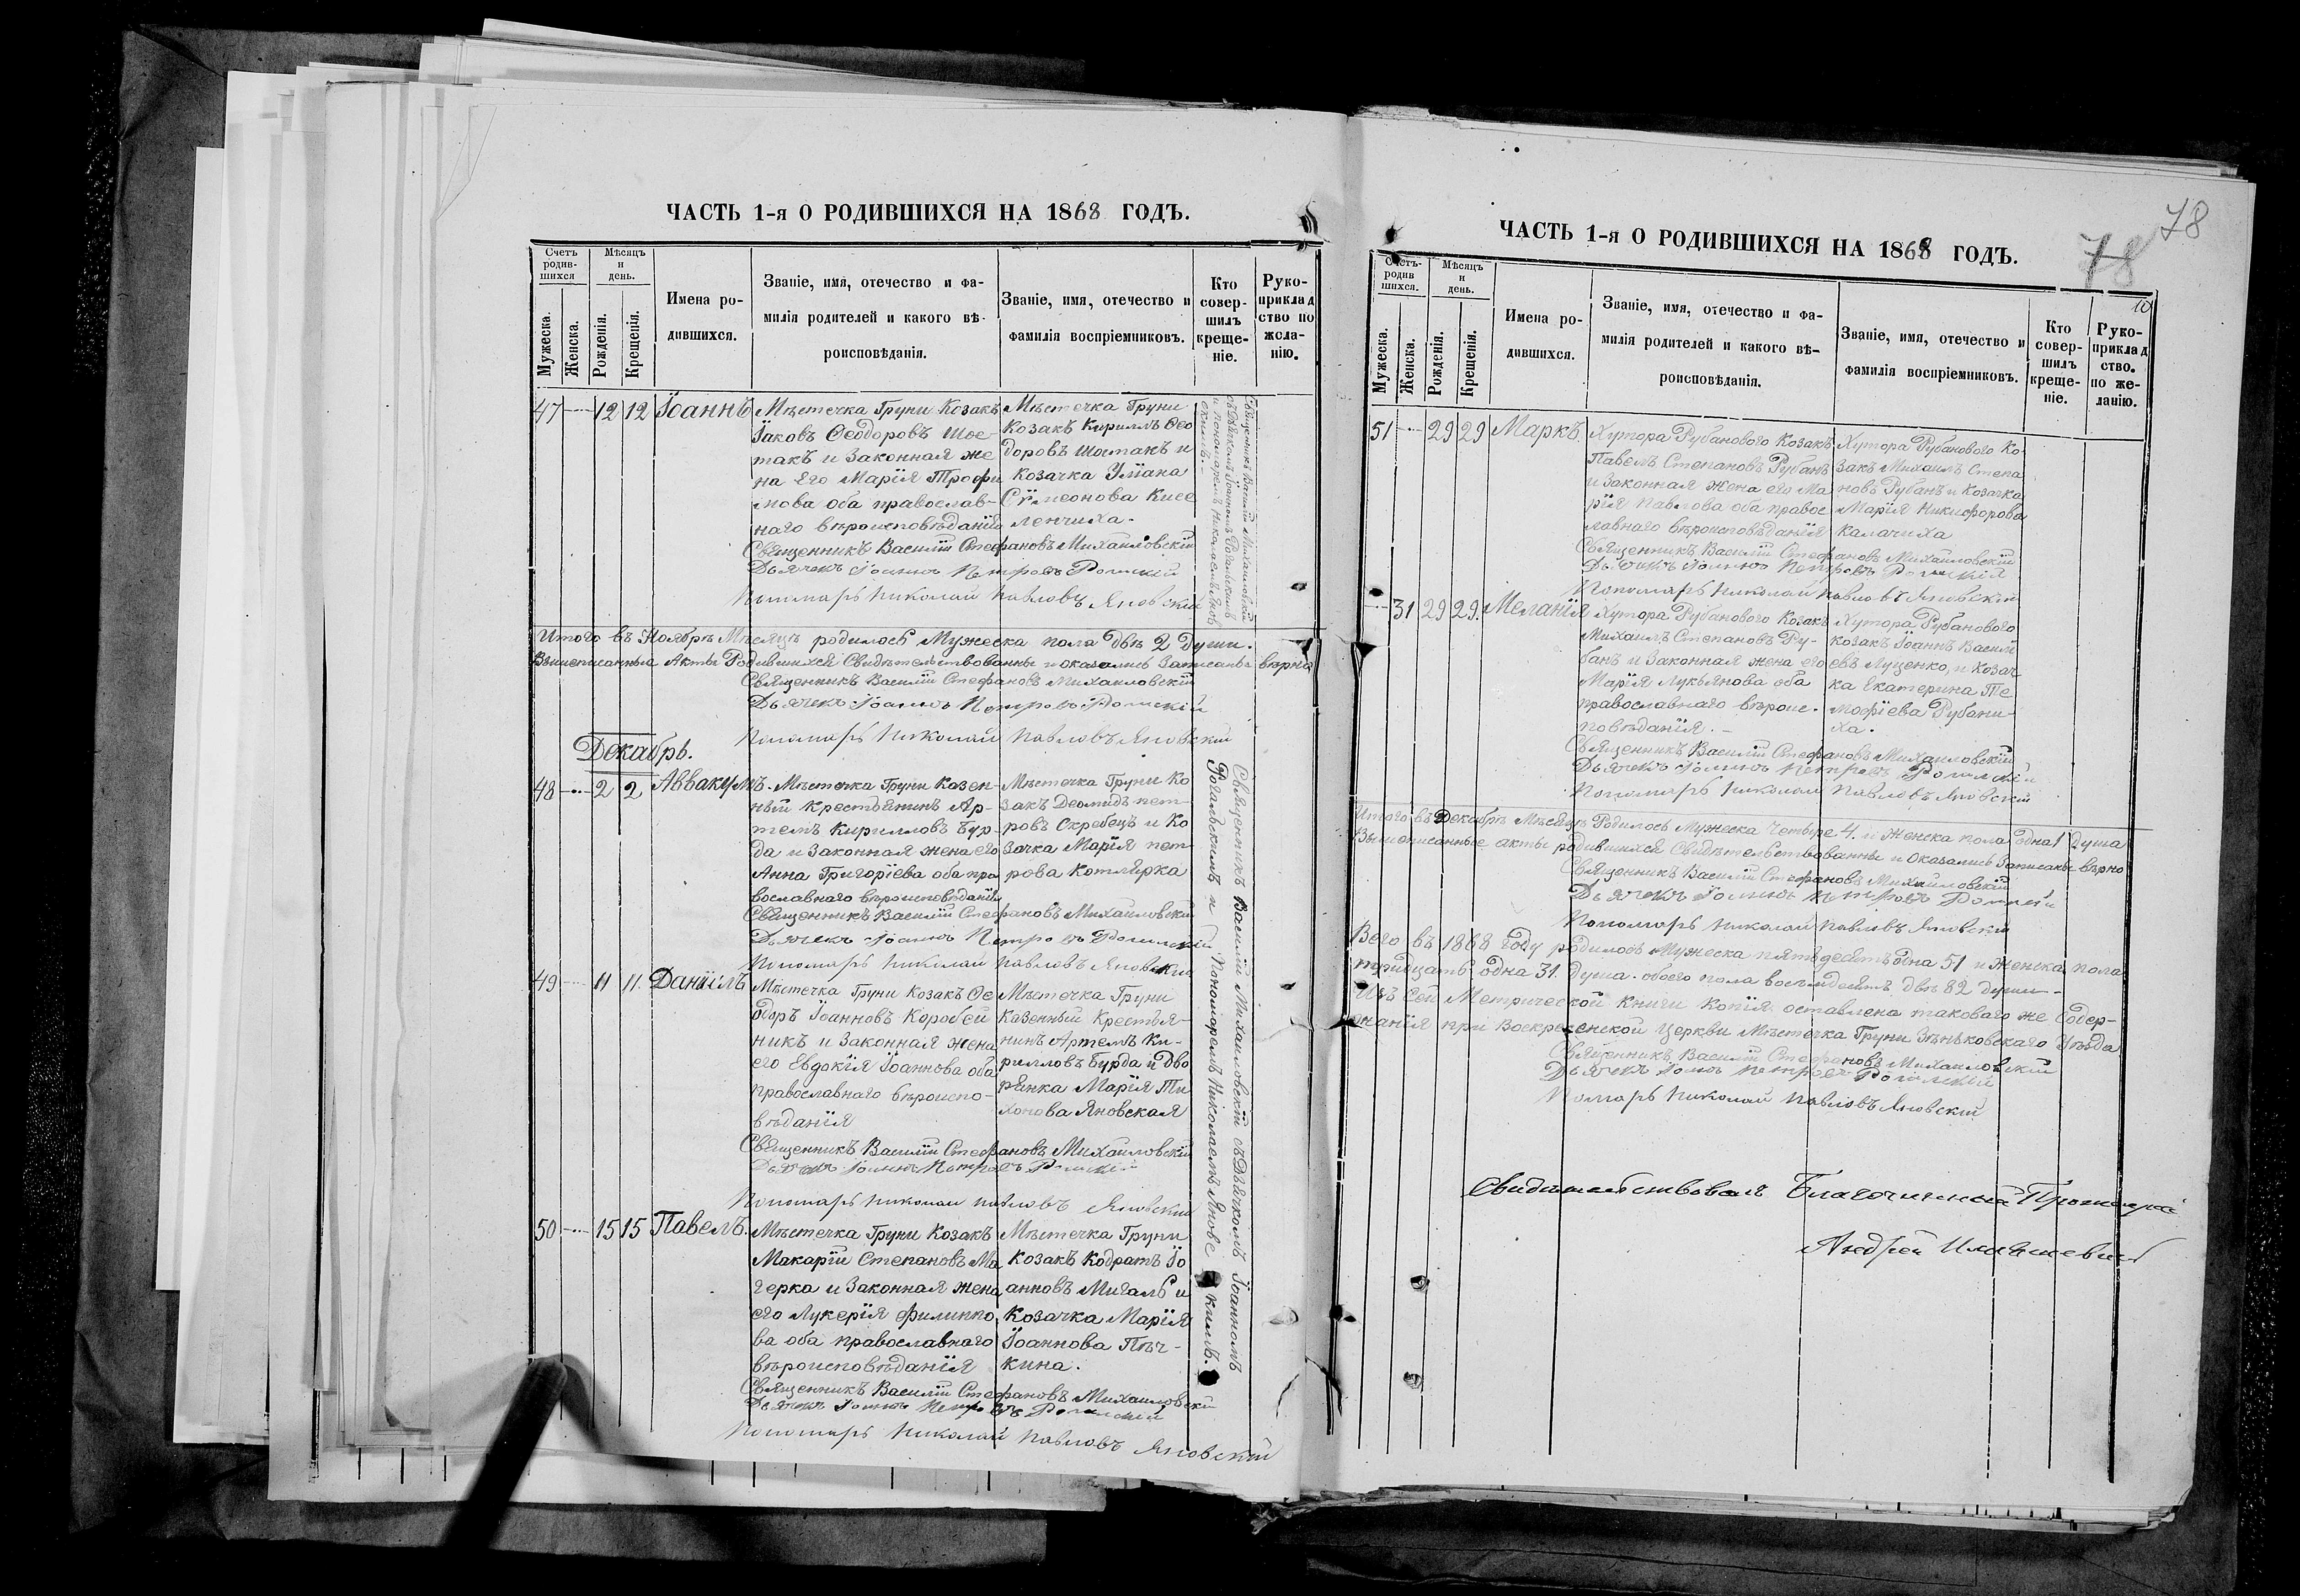 ЧАСТЬ 1-я О РОДИВШИХСЯ НА 1868 ГОДЪ.
Счетъ родив-шихся
Мѣсяцъ и день.
Мужеска.
Женска.
Рожденія.
Крещенія.
Имена ро-
дившихся.
Званіе, имя, отечество и фа-
милія родителей и какого вѣ-
роисповѣданія.
Званіе, имя, отечество и
фамилія воспріемниковъ.
Кто совер-шилъ креще-ніе.
Руко-приклад ство по жела-нію.
47 12 12 Іоаннъ
Мѣстечка Груни Козакъ
Іаковъ Ѳеодоровъ Шос-
такъ и Законная же
на Его Марія Трофи
мова оба православ-
наго вѣроисповѣданія
Мѣстечка Груни
Козакъ Кириллъ Ѳео
доровъ Шостакъ и
Козачка Уліана
Сѵмеонова Кисе
ленчиха.
Священникъ Василій Михайловскій
съ Дьячкомъ Іоанномъ Рогальскимъ
и Пономаремъ Николаемъ Янов
скимъ.
Священникъ Василій Стефановъ Михайловскій
Дьячекъ Іоаннъ Петровъ
Пономарь Николай Павловъ Яновскій
Итого въ Ноябрѣ Мѣсяцѣ родилось Мужеска пола двѣ 2 души.
Вышеписанные Акты Родившихся Свидѣтельствованны и оказались Записаны вѣрно
Священникъ Василій Стефановъ Михайловскій
Дьячекъ Іоаннъ Петровъ
Пономарь Николай Павловъ Яновскій
Декабрь.
48 2 2 Аввакумъ.
Мѣстечка Груни Казен-
ный крестьянинъ Ар-
темъ Кирилловъ Бур-
да и Законная жена его
Анна Григоріева оба пра
вославнаго вѣроисповѣданія
Мѣстечка Груни Ко
закъ Деомидъ Пет-
ровъ Скребецъ и Ко
зачка Марія Пет-
рова Котлярка
Священникъ Василій Михайловскій съ Дьячкомъ Іоанномъ
Рогальскимъ и Пономаремъ Николаемъ Яновс кимъ.
Священникъ Василій Стефановъ Михайловскій
Дьячекъ Іоаннъ Петровъ
Пономарь Николай Павловъ Яновскій
49 11 11. Даніилъ
Мѣстечка Груни Козакъ Ѳе
одоръ Іоанновъ Коробей
никъ и Законная жена
его Евдокія Іоаннова оба
православнаго вѣроиспо-
вѣданія
Мѣстечка Груни
Казенный Крестья-
нинъ Артемъ Ки-
рилловъ Бурда и Дво
рянка Марія Ти
хонова Яновская
Священникъ Василій Стефановъ Михайловскій
Дьячекъ Іоаннъ Петровъ
Пономарь Николай Павловъ Яновскій
50 15 15 Павелъ.
Мѣстечка Груни Козакъ
Макарій Степановъ Ма
черка и Законная жена
его Лукерія Филиппо
ва оба православнаго
вѣроисповѣданія
Мѣстечка Груни
Козакъ Кодратъ Іо
анновъ Мигаль и
Козачка Марія
Іоаннова Пѣч-
кина.
Священникъ Василій Стефановъ Михайловскій
Дьячекъ Іоаннъ Петровъ
Пономарь Николай Павловъ Яновскій
78
78
ЧАСТЬ 1-я О РОДИВШИХСЯ НА 1868 ГОДЪ.
Счетъ-родив шихся.
Мѣсяцъ и день.
Мужеска.
Женска.
Рожденія.
Крещенія.
Имена ро-
дившихся.
Званіе, имя, отечество и фа-
милія родителей и какого вѣ-
роисповѣданія.
Званіе, имя, отечество и
фамилія воспріемниковъ.
Кто совер-шилъ креще-ніе.
Руко-приклад ство. по же-ланію.
51 29 29 Маркъ.
Хутора Рубанового Козакъ
Павелъ Степановъ Рубанъ
и Законная жена его Ма
рія Павлова оба правос
лавнаго вѣроисповѣданія
Хутора Рубанового Ко
закъ Михаилъ Степа
новъ Рубанъ и Козачка
Марія Никифорова
Калачиха
Священникъ Василій Стефановъ Михайловскій
Дьячекъ Іоаннъ Петровъ
Пономарь Николай Павловъ Яновскій
31 29 29. Меланія
Хутора Рубанового Козакъ
Михаилъ Степановъ Ру-
банъ и Законная жена его
Марія Лукьянова оба
православнаго вѣроис-
повѣданія.
Хутора Рубанового
Козакъ Іоаннъ Васили
евъ Луценко, и Козач
ка Екатерина Ти
мофіева Рубани-
ха.
Священникъ Василій Стефановъ Михайловскій
Дьячекъ Іоаннъ Петровъ
Пономарь Николай Павловъ Яновскій
Итого въ Декабрѣ Мѣсяцѣ Родилось Мужеска Четыре 4. и Женска пола одна 1 душа
Вышеписанные акты родившихся Свидѣтельствованны и Оказались Записаны вѣрно
Священникъ Василій Стефановъ Михайловскій
Дьячекъ Іоаннъ Петровъ
Пономарь Николай Павловъ Яновскій
Всего въ 1868 Году родилось Мужеска пятьдесятъ одна 51 и Женска пола
тридцать одна 31. душа. обоего пола восьмдесятъ двѣ 82 души-
Изъ Сей Метрической Книги Копія оставлена таковаго же Содер-
жанія при Воскресенской Церкви Мѣстечка Груни Зѣньковскаго Уѣзда
Священникъ Василій Стефановъ Михайловскій
Дьячекъ Іоаннъ Петровъ
Пономарь Николай Павловъ Яновскій
Свидѣтельствовалъ Благочинный Протоіерей
Андрей